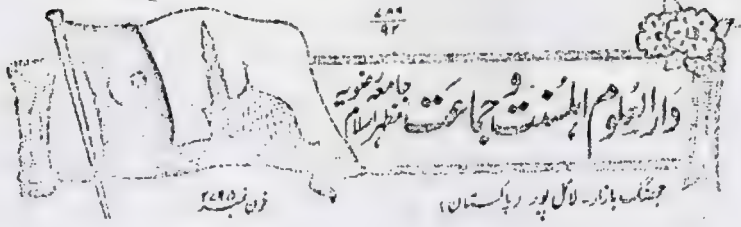 ۷۸۶
۹۲
دارالعلوم اہلسنت و جماعت جامعہ رضویہ
مظہر اسلام
جھنگ بازار۔ لائل پور (پاکستان)
فون نمبر